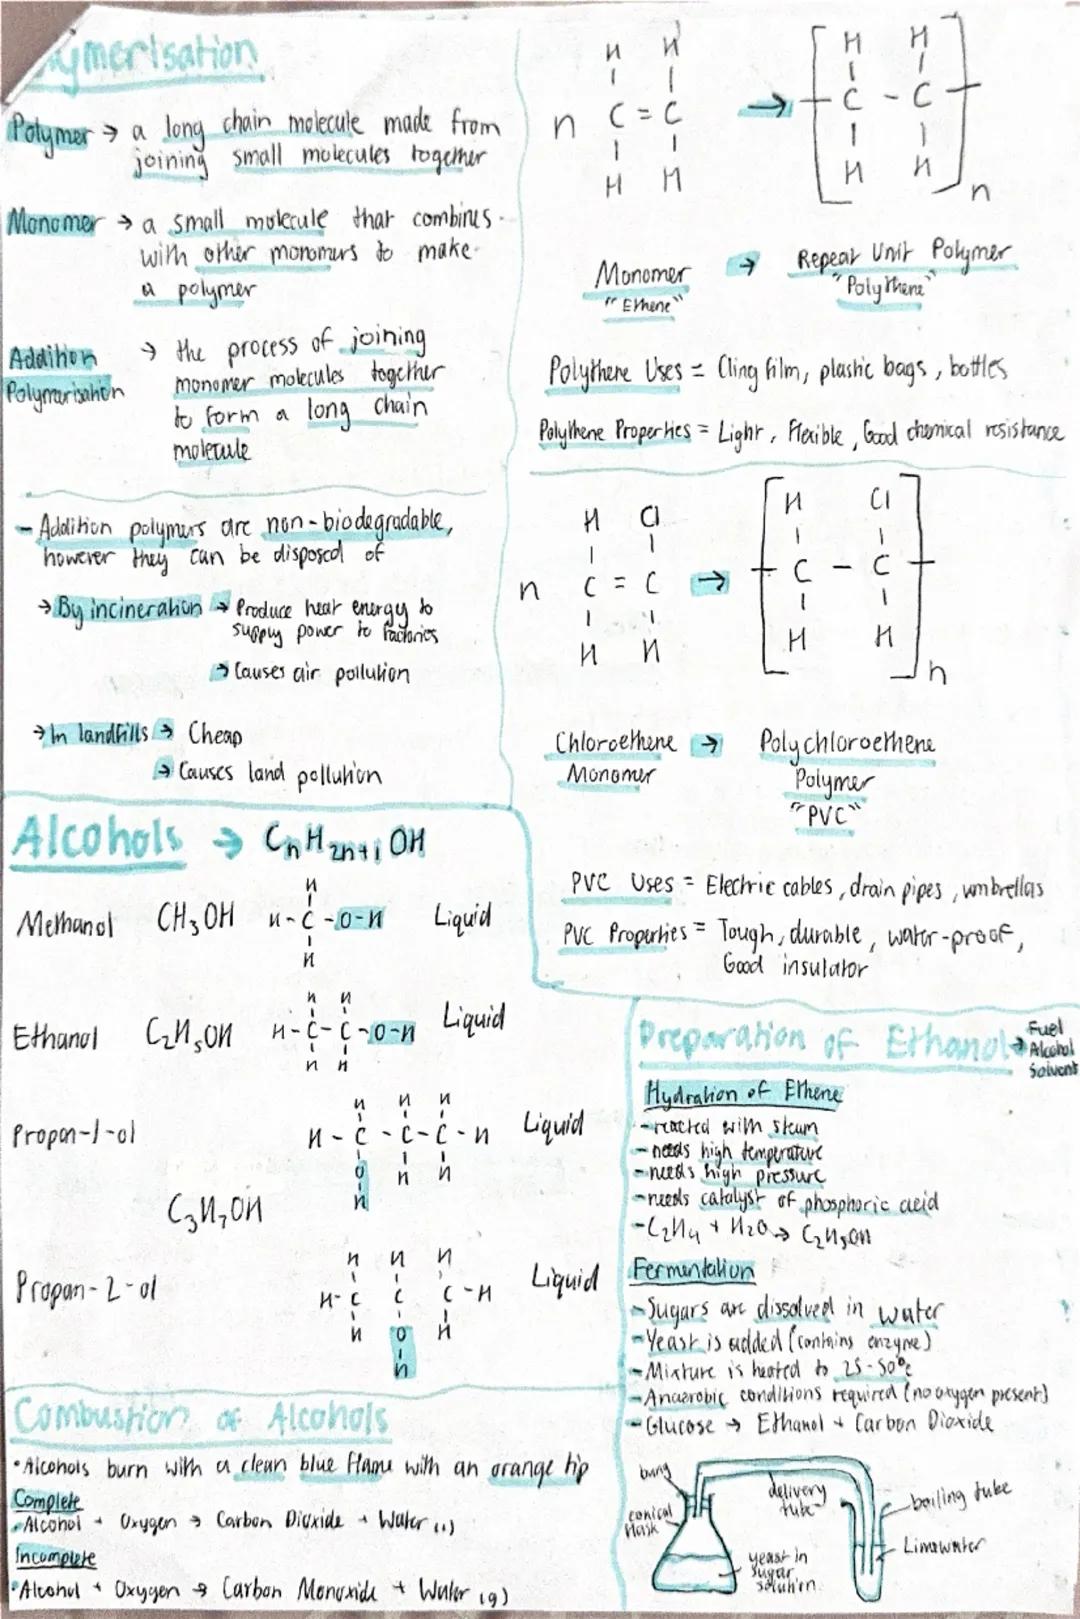 ymerisation
Polymer → a long chain molecule made from
joining small molecules together
Monomer → a small molecule that combines
with other monomers to make
a polymer
Addition → the process of joining
Polymerisation monomer molecules together
to form a long chain
molecule
- Addition polymers are non-biodegradable,
however they can be disposed of
→ By incineration → Produce heat energy to
supply power to factories
→ Causes air pollution
→ In landfills → Cheap
→ Causes land pollution
n
H H
C = C
H H
→
H H
C - C
H H
n
Monomer → Repeat Unit Polymer
"Ethene" "Polythene"
Polythene Uses = Cling film, plastic bags, bottles
Polythene Properties = Light, Flexible, Good chemical resistance
H Cl
n C = C →
H H
H Cl
C - C
H H
n
Chloroethene → Polychloroethene
Monomer Polymer
"PVC"
PVC Uses = Electric cables, drain pipes, umbrellas
PVC Properties = Tough, durable, water-proof,
Good insulator
Alcohols → CnH2n+1OH
H
Methanol CH3OH H-C-O-H Liquid
H
H H
Ethanol C2H5OH H-C-C-O-H Liquid
H H
H H H
Propan-1-ol H-C-C-C-H Liquid
O H H
H
C3H7OH
H H H
Propan-2-ol H-C C C-H Liquid
H O H
H
Combustion of Alcohols
• Alcohols burn with a clean blue flame with an orange tip
Complete
• Alcohol + Oxygen → Carbon Dioxide + Water (l)
Incomplete
• Alcohol + Oxygen → Carbon Monoxide + Water (g)
Preparation of Ethanol → Fuel
Alcohol
Solvent
Hydration of Ethene
- reacted with steam
- needs high temperature
- needs high pressure
- needs catalyst of phosphoric acid
- C2H4 + H2O → C2H5OH
Fermentation
- Sugars are dissolved in water
- Yeast is added (contains enzyme)
- Mixture is heated to 25-50°C
- Anaerobic conditions required (no oxygen present)
- Glucose → Ethanol + Carbon Dioxide
bung
conical
flask
delivery
tube
yeast in
sugar
solution
boiling tube
Limewater